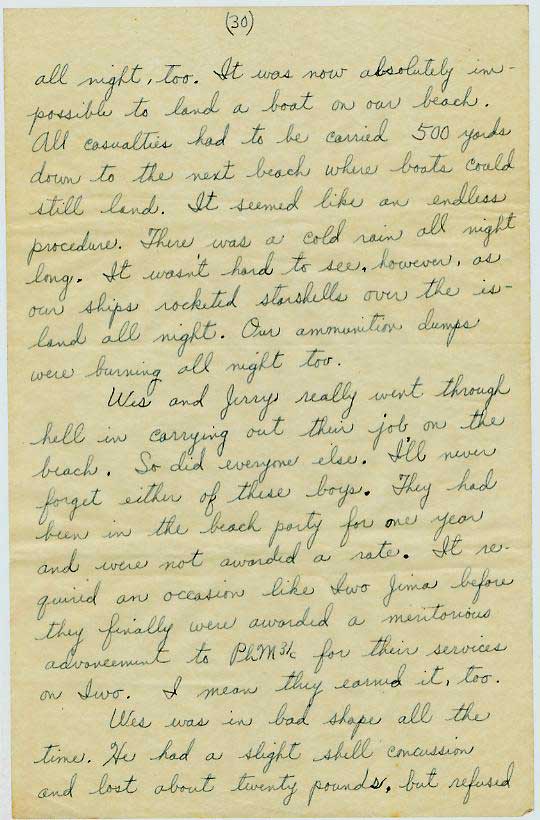 (30)
all night, too. It was now absolutely im-
possible to land a boat on our beach.
All casualties had to be carried 500 yards
down to the next beach where boats could
still land. It seemed like an endless
procedure. There was a cold rain all night
long. It wasn't hard to see, however, as
our ships rocketed starshells over the is-
land all night. Our ammunition dumps
were burning all night too.
Wes and Jerry really went through
hell in carrying out their job on the
beach. So did everyone else. I'll never
forget either of these boys. They had
been in the beach party for one year
and were not awarded a rate. It re-
quired an occasion like Iwo Jima before
they finally were awarded a meritorious
advancement to PhM3/c for their services
on Iwo. I mean they earned it, too.
Wes was in bad shape all the
time. He had a slight shell concussion
and lost about twenty pounds, but refused